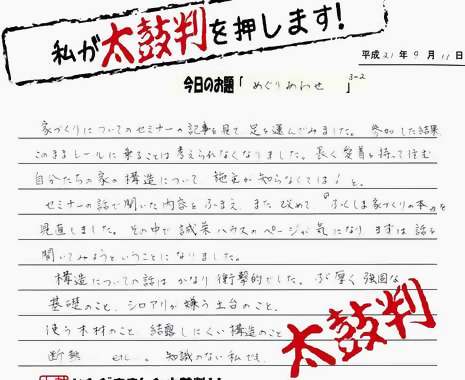 私が太鼓判を押します!
平成21年9月11日
今日のお題「めぐりあわせ」
家づくりについてのセミナーの記事を見て、足を運んでみました。参加した結果
このままレールに乗ることは考えられなくなりました。長く愛着を持って住む
自分たちの家の構造について 施主が知らなくては!と。
セミナーの話で聞いた内容をふまえ、また改めて『ふくしま家づくりの本』を
見直しました。その中で誠栄ハウスのページが気になり まずは話を
聞いてみようということになりました。
構造についての話は かなり衝撃的でした。ぶ厚く強固な
基礎のこと、シロアリが嫌う土台のこと、
使う木材のこと 結露しにくい構造のこと
断熱 etc…。知識のない私でも、
太鼓判